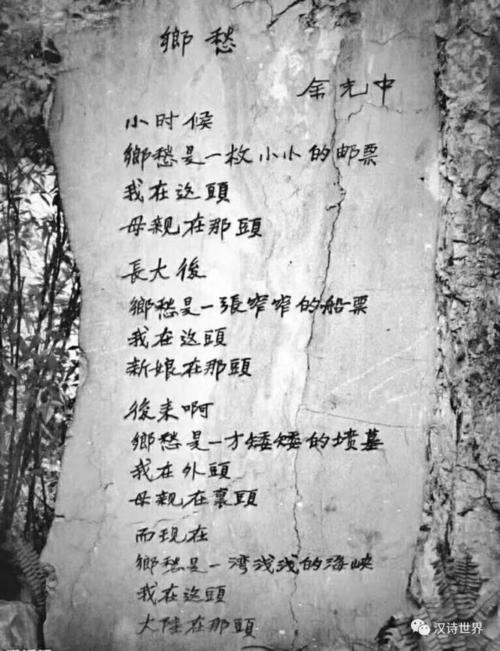 鄉愁
余光中
小时候
鄉愁是一枚小小的邮票
我在这頭
母親在那頭
長大後
鄉愁是一張窄窄的船票
我在这頭
新娘在那頭
後来啊
鄉愁是一方矮矮的墳墓
我在外頭
母親在裏頭
而现在
鄉愁是一湾浅浅的海峡
我在这頭
大陸在那頭
汉诗世界